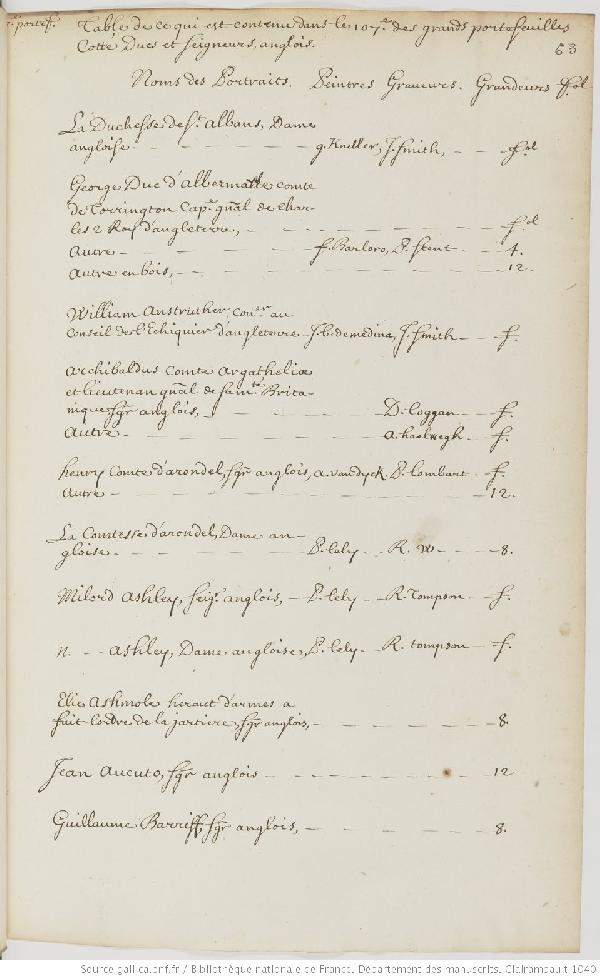 Table de ce qui est contenu dans le 107.e des grands portefeuilles
Cotté Ducs et Seigneurs, anglois.
63
Noms des Portraits. Peintres Graveurs. Grandeurs fol
La Duchesse de St. Albans, Dame
angloise. g. Kneller, J. Smith, fol
George Duc d'albermalle comte
de Torrington Cap.e gnal de Char-
les 2 Roy d'angleterre, fol
Autre f. Barloro, P. Stent 4.
Autre en bois, 12.
William Anstruther, Con.er au
Conseil de l'Echiquier d'angleterre J. b. de medina, J. Smith f.
Archibaldus Comte Argatheliæ
et lieutenan gnal de Brita-
nique Sgr anglois, D. Loggan f.
Autre a. haelwegh f.
henry Comte d'arondel, Sgr anglois, a. vandyck P. Lombart f.
Autre 12.
La Comtesse d'arondel, Dame an-
gloise P. Lely R. W 8.
Milord Ashley, Seigr. anglois, P. Lely R. Tompson f.
N. Ashley, Dame angloise, P. Lely R. tompson f.
Elie Ashmole heraut d'armes a
fait lordre de la jartiere, Sgr anglois, 8.
Jean Aucuto, Sgr anglois 12
Guillaume Barriff, Sgr anglois, 8.
Source gallica.bnf.fr / Bibliothèque nationale de France. Département des manuscrits. Clairambault 1040